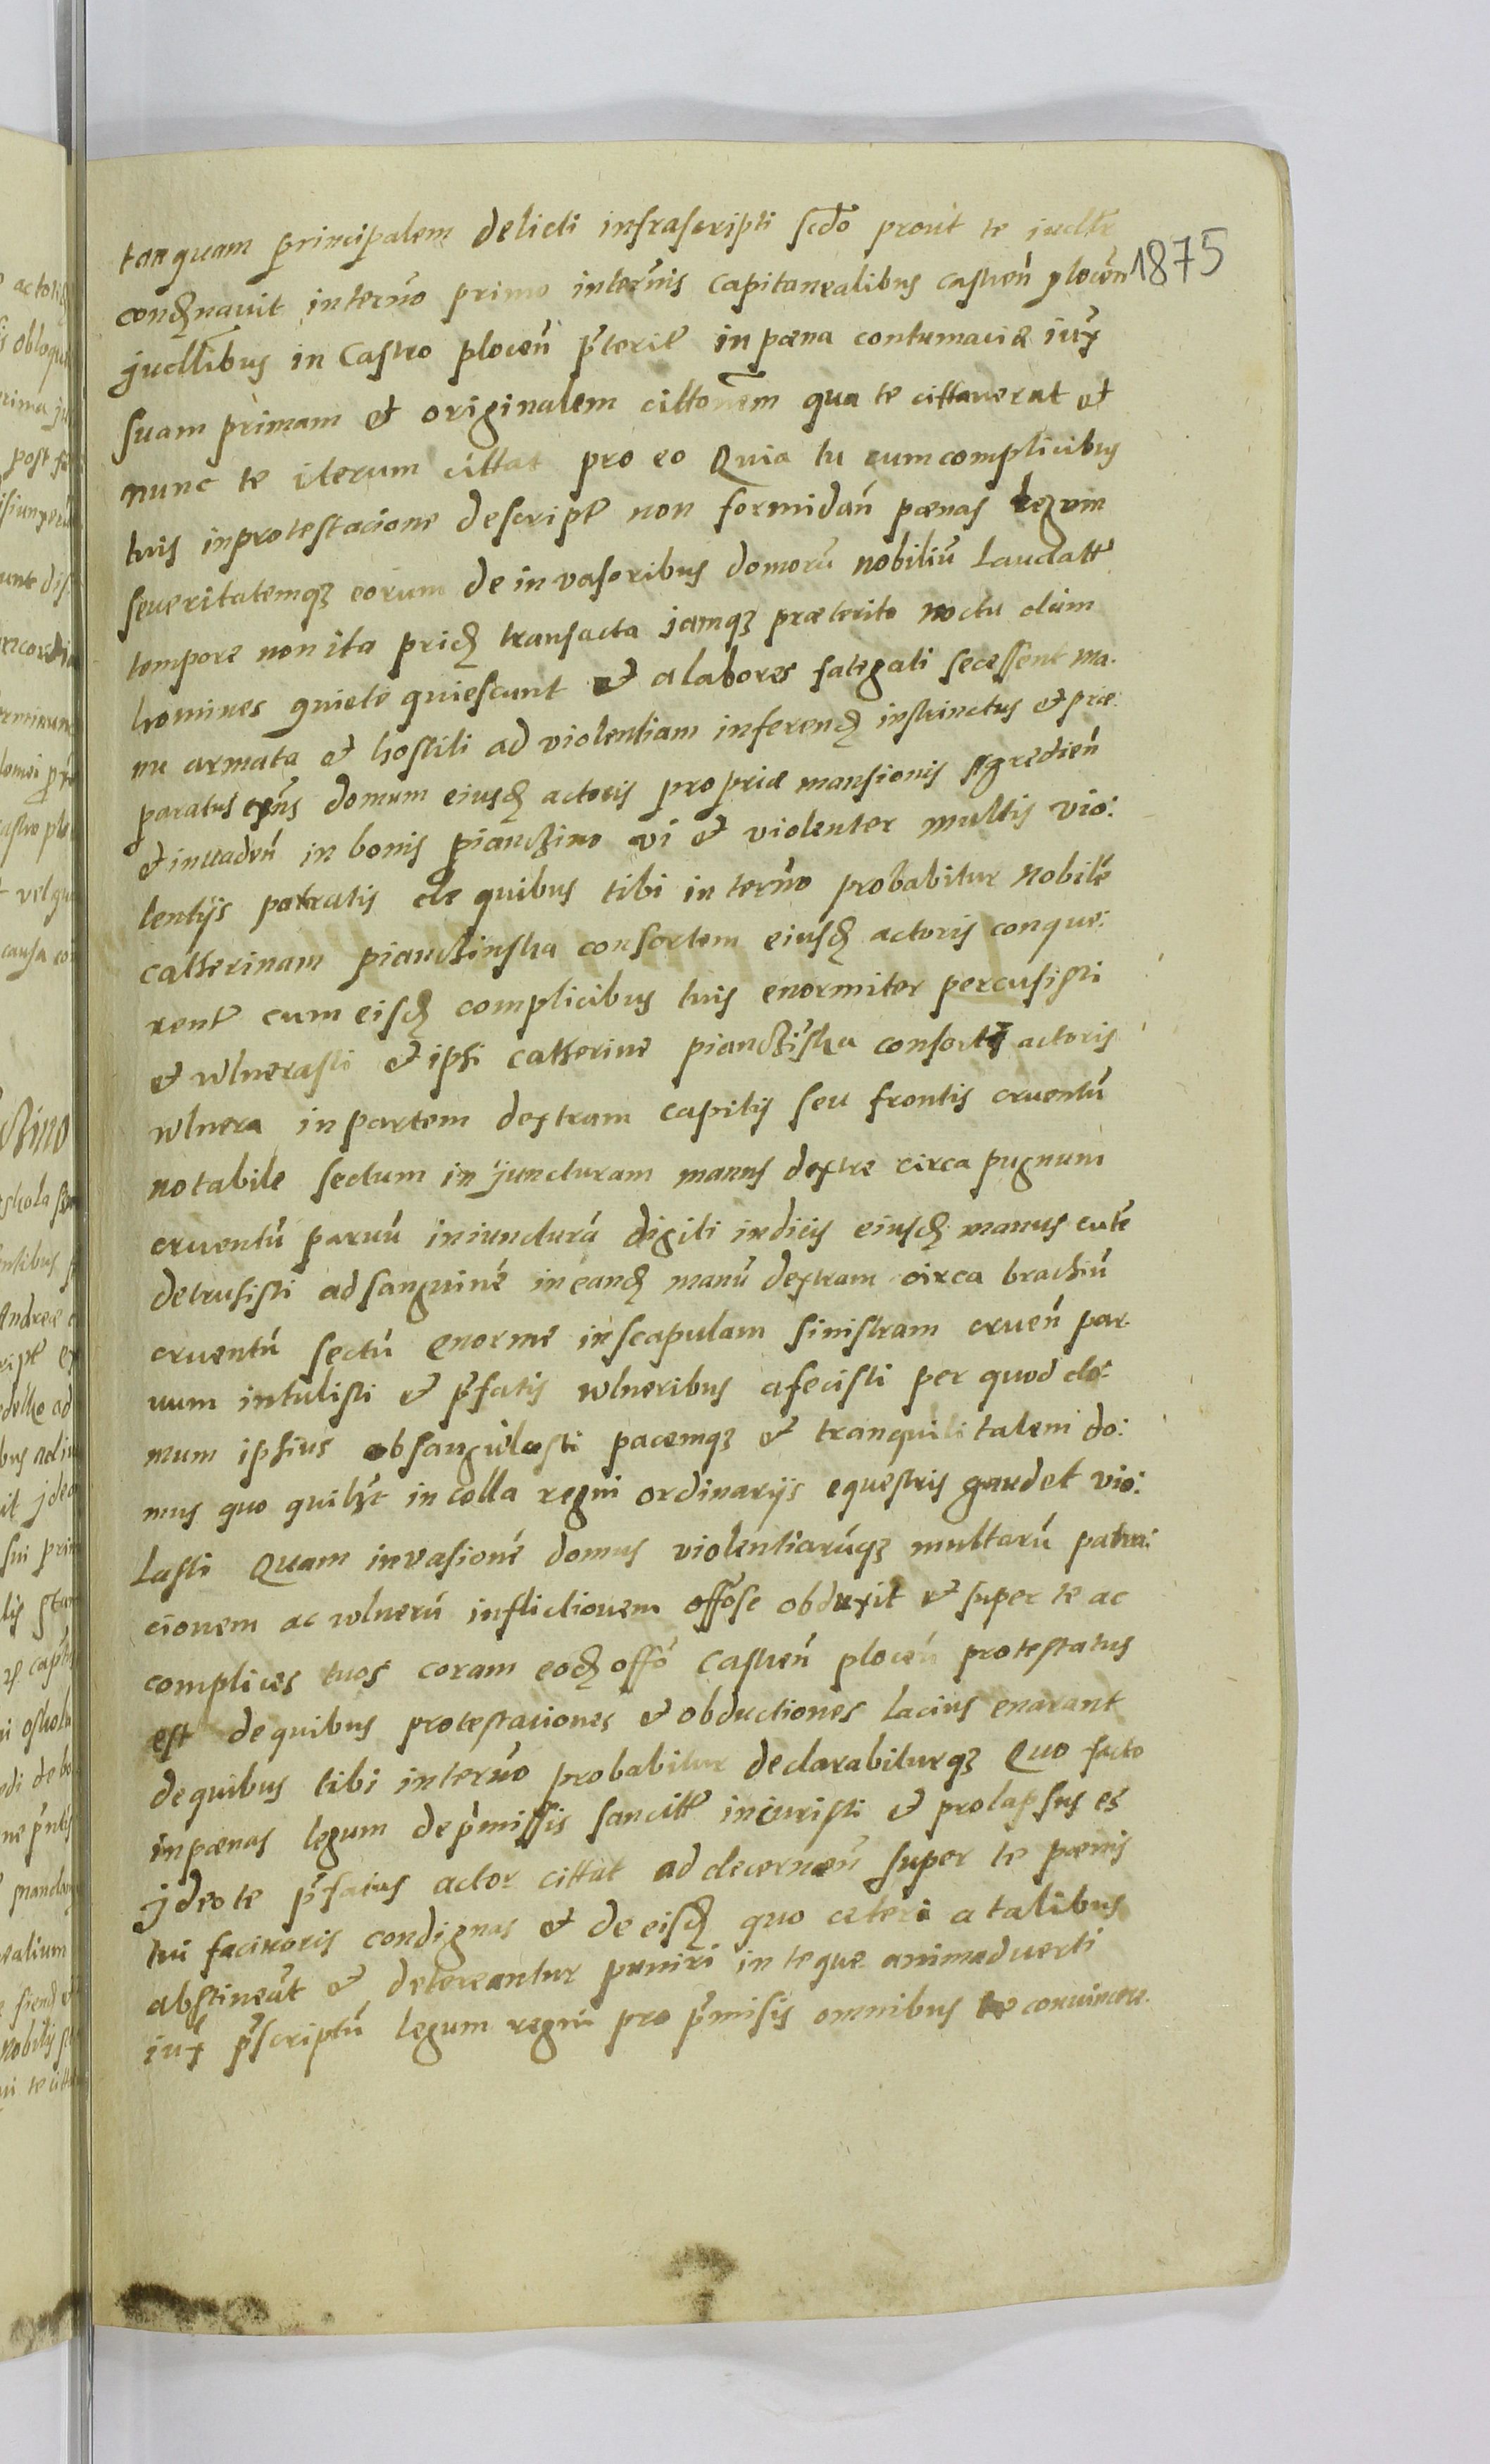 tanquam principalem delicti infrascripti scdo prout te iudltr
1875
condnavit in terno primo in ternis Capitanealibus castren plocen
judllibus in Castro plocen pterit in pæna contumaciæ iux
suam primam et originalem cittonem qua te cittauerat et
nunc te iterum cittat pro eo Quia tu cum complicibus
tuis in protestacione descript non formidan pænas legum
seueritatemq eorum de invasoribus domoru nobiliu Laudatt
tempore non ita prid transacta jamq præterito noctu dum
homines quiete quiescunt et a labores fategati secessent ma.
nu armata et hostili ad violentiam inferend instrinctus et præ:
paratus domum eiusd actoris propriæ mansionis agredien
et inuaden in bonis pianczino vi et violenter multis vio:
lentijs patratis de quibus tibi in terno probabitur Nobile
Catherinam pianczinska consortem eiusd actoris conque:
rent cum eisd complicibus tuis enormiter percusisti
et wlnerasti et ipsi Catherine pianczinska consorti actoris
wlnera in partem dextram capitis seu frontis cruentu
notabile sectum in juncturam manus dextre circa pugnum
cruentu paruu in iunctura digiti indicis eiusd manus cute
detrusisti ad sanguine in eand manu dextram circa brachiu
cruentu sectu enorme in scapulam sinistram cruen par.
uum intulisti et pfatis wlneribus afecisti per quod do:
mum ipsius obsangwlasti pacemq et tranquilitatem do:
mus quo quilbt incolla regni ordinarijs equestris gaudet vio:
lasti Quam invasione domus violentiaruq multaru patra:
cionem ac wlneru inflictionem offose obduxit et super te ac
complices tuos coram eod offo Castren plocen protestatus
est de quibus protestaciones et obductiones lacius enarant
de quibus tibi in terno probabitur declarabiturq Quo facto
in pænas legum de pmissis sancitt incuristi et prolapsus es
jdeo te pfatus actor cittat ad decernen super te pænis
tui facinoris condignas et de eisd quo ceteri a talibus
abstineat et detereantur puniri in te que animaduerti
iux pscriptu legum regni pro pmisis omnibus te conuincen.